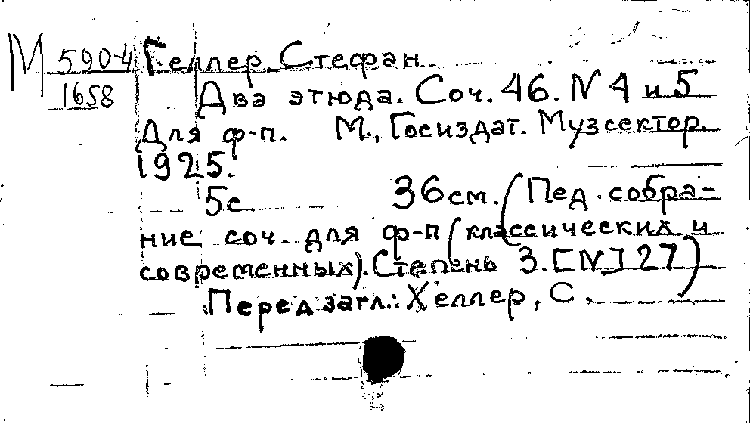 М 590-4 Геллер, Стефан.
1658 Два этюда. Соч. 46. N 4 и 5
Для ф-п. М., Госиздат. Музсектор.
1925.
5с 36см. (Пед. собра-
ние соч. для ф-п (классических и
современных). Степень 3. [N] 27)
Перед загл.: Хеллер, С.